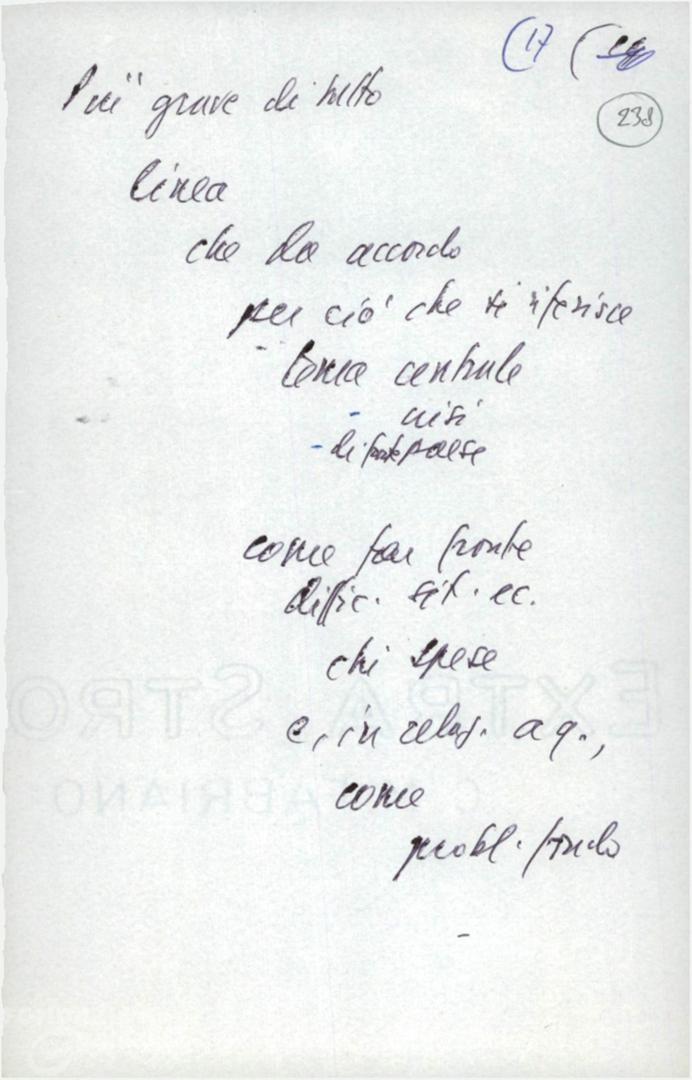 (17 (
238
Più grave di tutto
linea
che da accordo
per ciò che si riferisce
tema centrale
- crisi
- di paese
come far fronte
diffic. sit. ec.
chi spese
e, in relaz. a q.,
come
probl. fondo
-
EXTRA STRO
C.M.FABRIANO